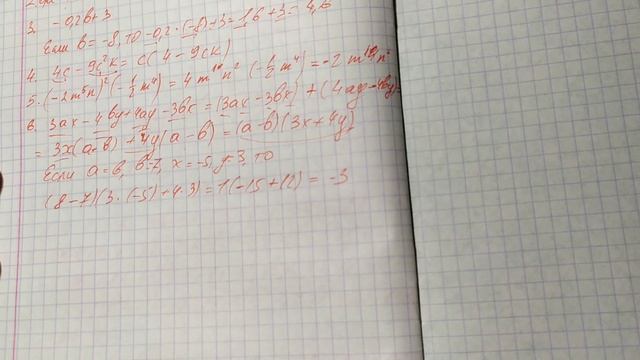 3. -0,2в+3
Если в=-8, то -0,2·(-8)+3=1,6+3=4,6
4. 4c-9c²к=c(4-9cк)
5. (-2m⁵n)²(-½m⁴)=4m¹⁰n²(-½m⁴)=-2m¹⁴n²
6. 3ax-4by+4ay-3bx=(3ax-3bx)+(4ay-4by)
=3x(a-b)+4y(a-b)=(a-b)(3x+4y)
Если a=8, b=7, x=-5, y=3, то
(8-7)(3·(-5)+4·3)=1(-15+12)=-3